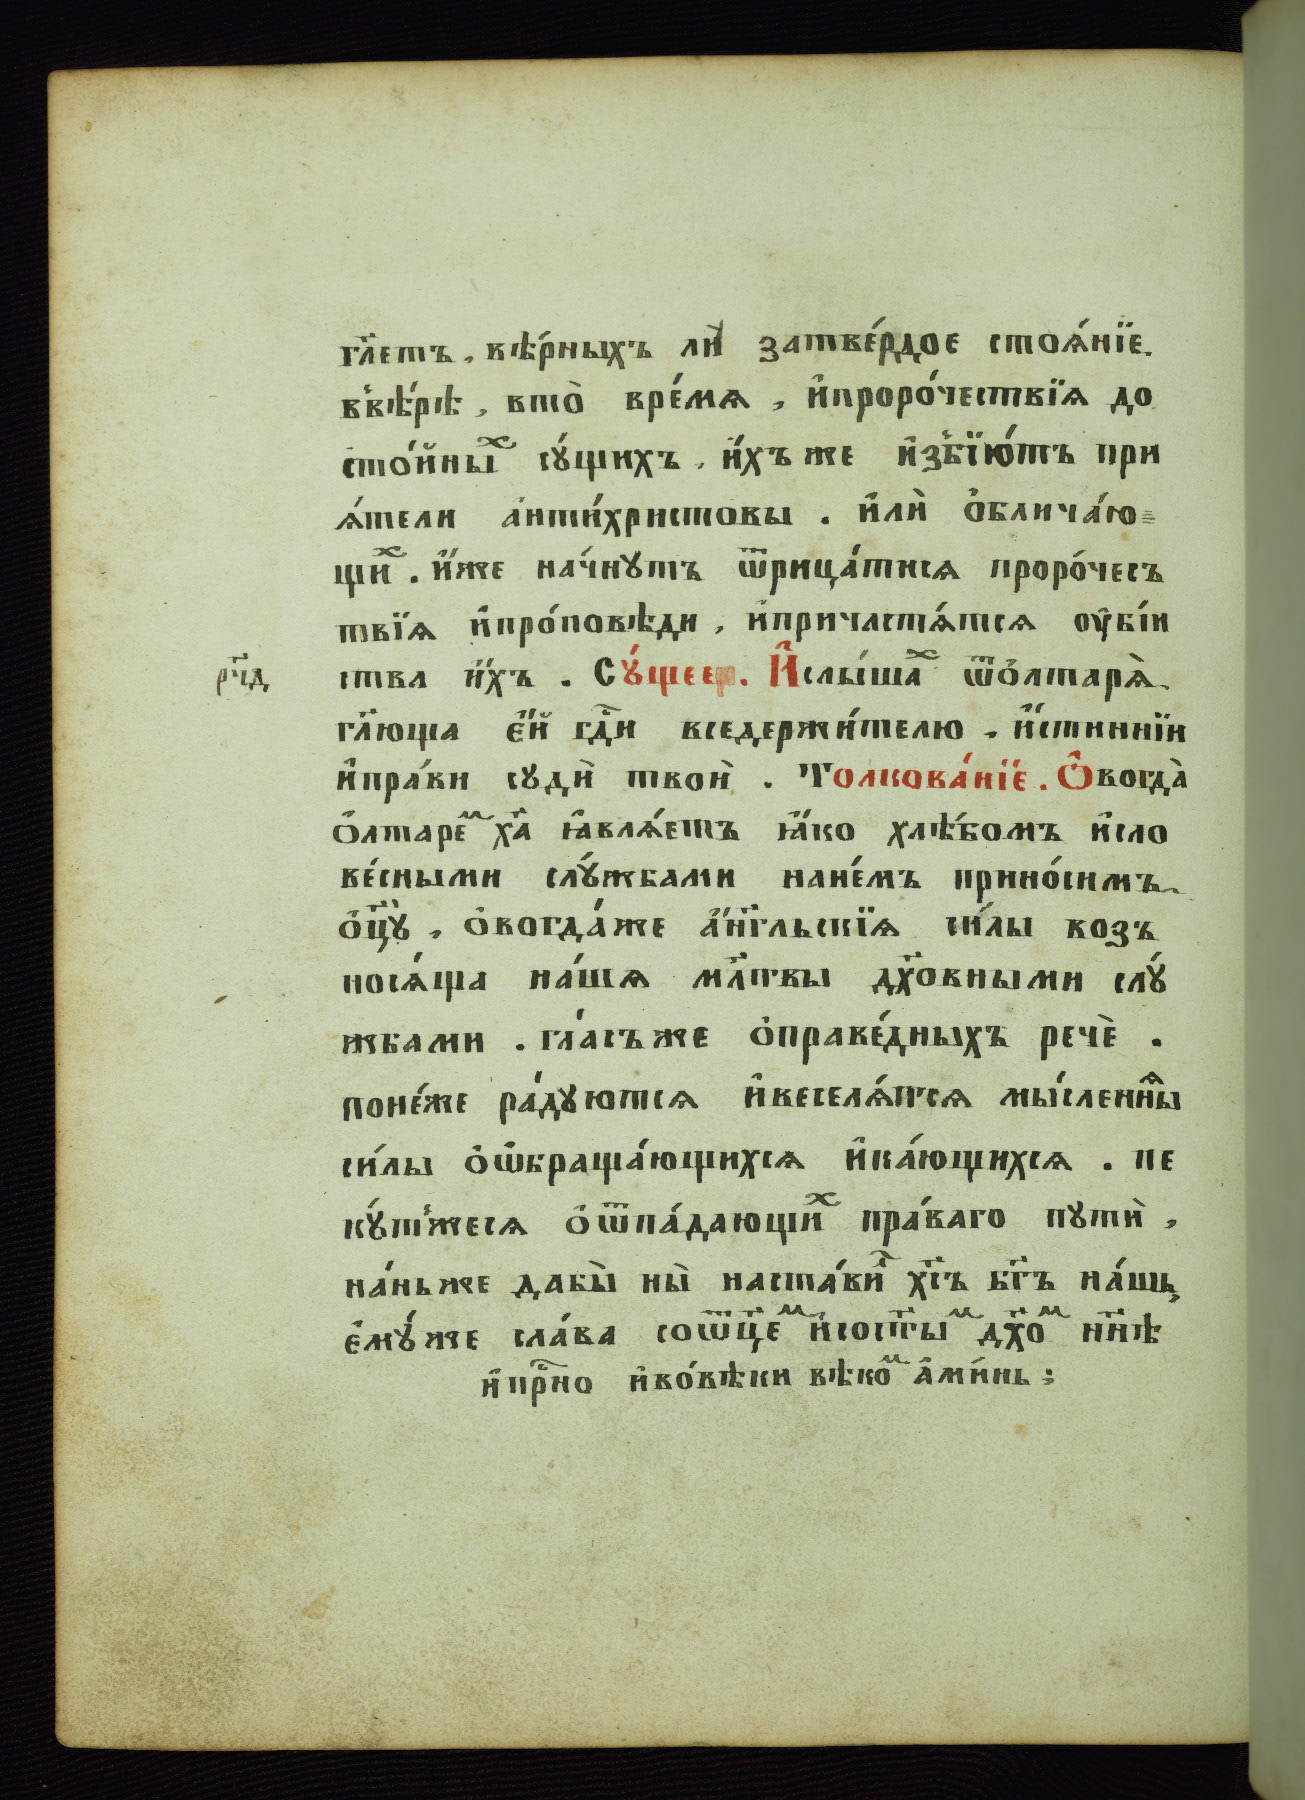 гл҃етъ, вѣ́рныхъ ли̏ затве́рдое стоѧ́нїе.
вⸯвѣ́рѣ, вто̀ вре́мѧ, и҆проро́чествїѧ до
сто́йныⷯ сꙋ́щихъ, и҆́хъже и҆збїю́тъ при
ѧ́тели а҆нти́христовы. и҆лѝ ѻ҆блича́ю
щиⷯ. и҆́же на́чнꙋтъ ѿрица́тисѧ проро́чес
твїѧ и҆про́повѣди, и҆причастѧ́тсѧ оу҆бі́и
рч҃д
ства и҆́хъ. Сꙋ́щее. И҆слы́шаⷯ ѿѻ҆лтарѧ̀
гл҃юща є҆́й гд҃и вседержи́телю, и҆́стиннїи
и҆пра́ви сꙋдѝ твоѝ. Толкова́нїе. Ѻ҆вогда̀
ѻ҆лтареⷨ хр҃а ꙗ҆влѧ́етъ ꙗ҆́ко хлѣ́бомъ и҆сло
ве́сными слꙋ́жбами нане́мъ прино́симъ
ѻ҆ц҃ꙋ̀, ѻ҆вогда́же а҆́нг҃льскїѧ си́лы воз
носѧ́ща на́шѧ мл҃твы дх҃овными слꙋ́
жбами. гла́съже ѻ҆праве́дныхъ речѐ.
поне́же ра́дꙋютсѧ и҆веселѧ́тсѧ мы́сленныѧ
си́лы ѻ҆ѡ҆браща́ющихсѧ и҆ка́ющихсѧ. пе
кꙋ́тⸯжесѧ ѻ҆ѿпа́дающиⷯ пра́ваго пꙋтѝ,
на́ньже дабы̀ ны̀ наста́виⷧ хс҃ъ бг҃ъ на́шь,
є҆мꙋ́же сла́ва соѿц҃еⷨ и҆сост҃ыⷨ дх҃оⷨ нн҃ѣ
и҆пр҃но и҆во́вѣки вѣкоⷨ а҆ми́нь: